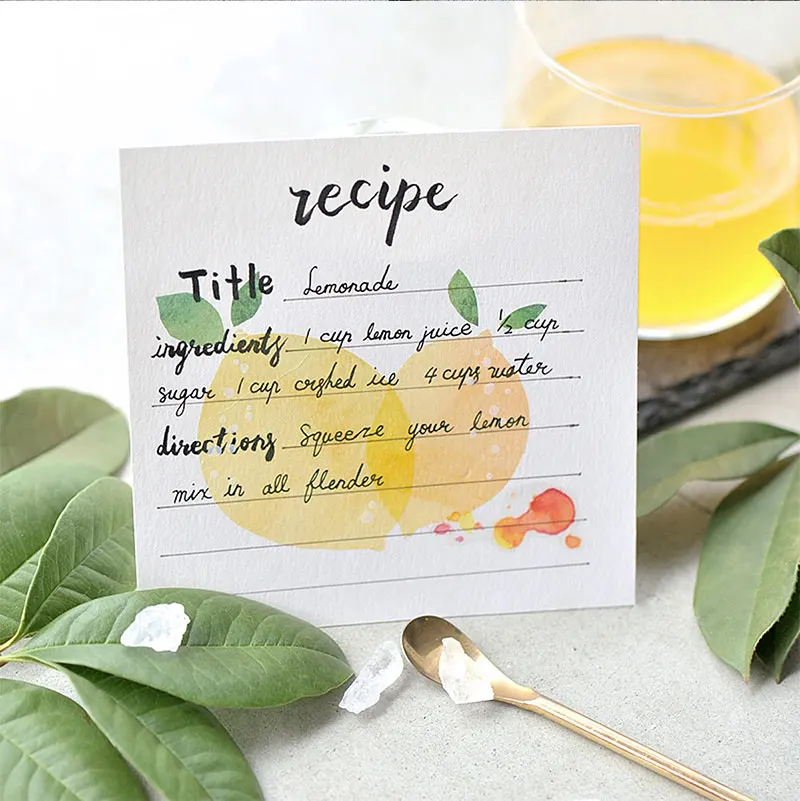 recipe
Title Lemonade
ingredients 1 cup lemon juice ½ cup
sugar 1 cup crshed ice 4 cups water
directions Squeeze your lemon
mix in all flender